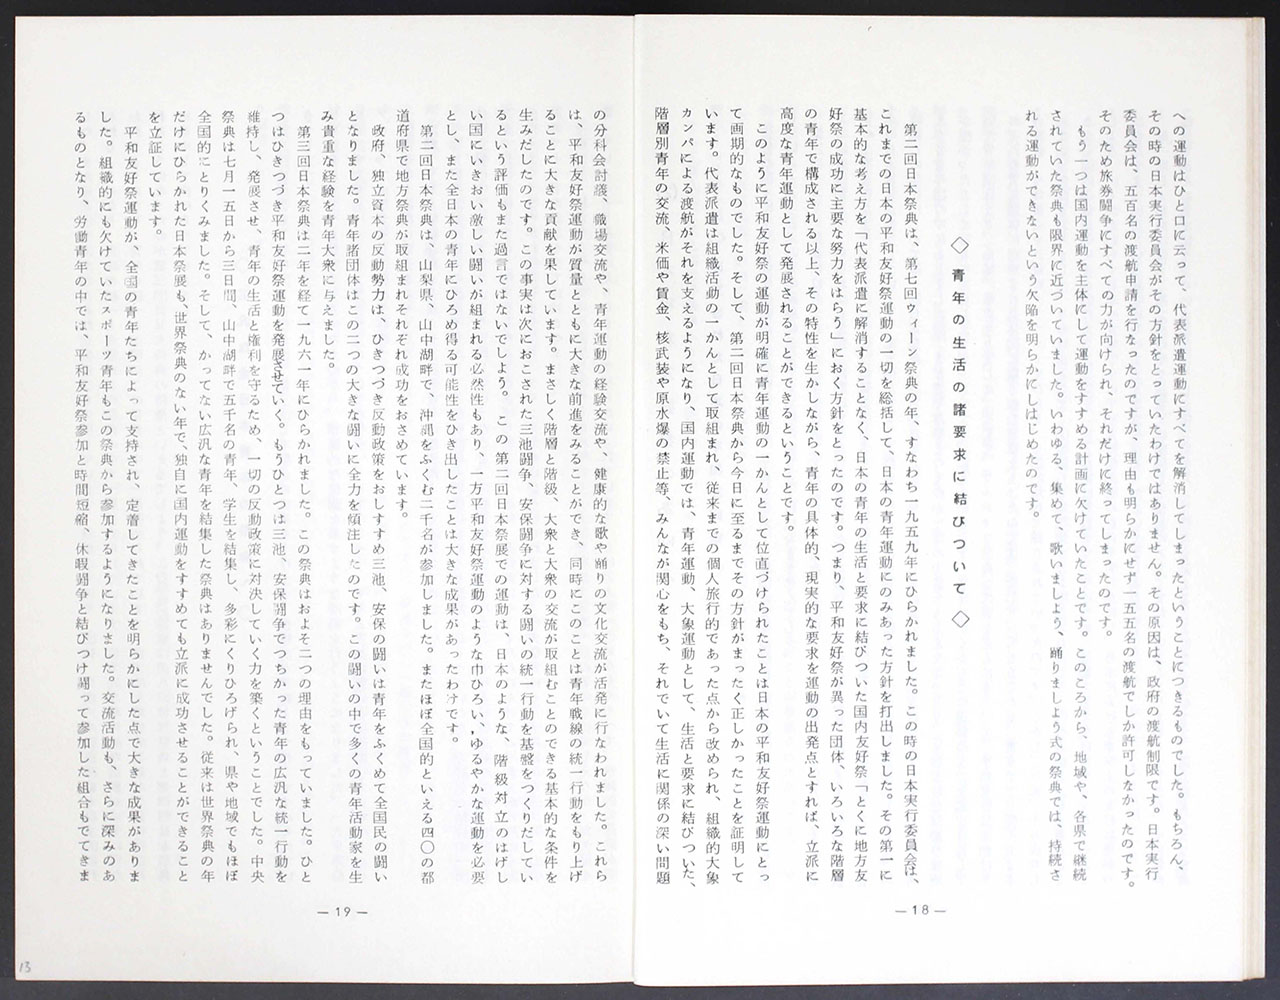 への運動はひと口に云って、代表派遣運動にすべてを解消してしまったということにつきるものでした。もちろん、
その時の日本実行委員会がその方針をとっていたわけではありません。その原因は、政府の渡航制限です。日本実行
委員会は、五百名の渡航申請を行なったのですが、理由も明らかにせず一五五名の渡航でしか許可しなかったのです。
そのため旅券闘争にすべての力が向けられ、それだけに終ってしまったのです。
もう一つは国内運動を主体にして運動をすすめる計画に欠けていたことです。このころから、地域や、各県で継続
されていた祭典も限界に近づいていました。いわゆる、集めて、歌いましょう、踊りましょう式の祭典では、持続さ
れる運動ができないという欠陥を明らかにしはじめたのです。
◇ 青年の生活の諸要求に結びついて ◇
第二回日本祭典は、第七回ウィーン祭典の年、すなわち一九五九年にひらかれました。この時の日本実行委員会は、
これまでの日本の平和友好祭運動の一切を総括して、日本の青年運動にのみあった方針を打出しました。その第一に
基本的な考え方を「代表派遣に解消することなく、日本の青年の生活と要求に結びついた国内友好祭「とくに地方友
好祭の成功に主要な努力をはらう」におく方針をとったのです。つまり、平和友好祭が異った団体、いろいろな階層
の青年で構成される以上、その特性を生かしながら、青年の具体的、現実的な要求を運動の出発点とすれば、立派に
高度な青年運動として発展されることができるということです。
このように平和友好祭の運動が明確に青年運動の一かんとして位置づけられたことは日本の平和友好祭運動にとっ
て画期的なものでした。そして、第二回日本祭典から今日に至るまでその方針がまったく正しかったことを証明して
います。代表派遣は組織活動の一かんとして取組まれ、従来までの個人旅行的であった点から改められ、組織的大象
カンパによる渡航がそれを支えるようになり、国内運動では、青年運動、大象運動として、生活と要求に結びついた、
階層別青年の交流、米価や賃金、核武装や原水爆の禁止等、みんなが関心をもち、それでいて生活に関係の深い問題
—18—
の分科会討議、職場交流や、青年運動の経験交流や、健康的な歌や踊りの文化交流が活発に行なわれました。これら
は、平和友好祭運動が質量とともに大きな前進をみることができ、同時にこのことは青年戦線の統一行動をもり上げ
ることに大きな貢献を果しています。まさしく階層と階級、大衆と大衆の交流が取組むことのできる基本的な条件を
生みだしたのです。この事実は次におこされた三池闘争、安保闘争に対する闘いの統一行動を基盤をつくりだしてい
るという評価もまた過言ではないでしよう。この第二回日本祭展での運動は、日本のような、階級対立のはげし
い国にいきおい激しい闘いが組まれる必然性もあり、一方平和友好祭運動のような巾ひろい、ゆるやかな運動を必要
とし、また全日本の青年にひろめ得る可能性をひき出したことは大きな成果があったわけです。
第二回日本祭典は、山梨県、山中湖畔で、沖縄をふくむ二千名が参加しました。またほぼ全国的といえる四〇の都
道府県で地方祭典が取組まれそれぞれ成功をおさめています。
政府、独立資本の反動勢力は、ひきつづき反動政策をおしすすめ三池、安保の闘いは青年をふくめて全国民の闘い
となりました。青年諸団体はこの二つの大きな闘いに全力を傾注したのです。この闘いの中で多くの青年活動家を生
み貴重な経験を青年大衆に与えました。
第三回日本祭典は二年を経て一九六一年にひらかれました。この祭典はおよそ二つの理由をもっていました。ひと
つはひきつづき平和友好祭運動を発展させていく。もうひとつは三池、安保闘争でつちかった青年の広汎な統一行動を
維持し、発展させ、青年の生活と権利を守るため、一切の反動政策に対決していく力を築くということでした。中央
祭典は七月一五日から三日間、山中湖畔で五千名の青年、学生を結集し、多彩にくりひろげられ、県や地域でもほぼ
全国的にとりくみました。そして、かってない広汎な青年を結集した祭典はありませんでした。従来は世界祭典の年
だけにひらかれた日本祭展も、世界祭典のない年で、独自に国内運動をすすめても立派に成功させることができること
を立証しています。
平和友好祭運動が、全国の青年たちによって支持され、定着してきたことを明らかにした点で大きな成果がありま
した。組織的にも欠けていたスポーツ青年もこの祭典から参加するようになりました。交流活動も、さらに深みのあ
るものとなり、労働青年の中では、平和友好祭参加と時間短縮、休暇闘争と結びつけ闘って参加した組合もでてきま
—19—
13